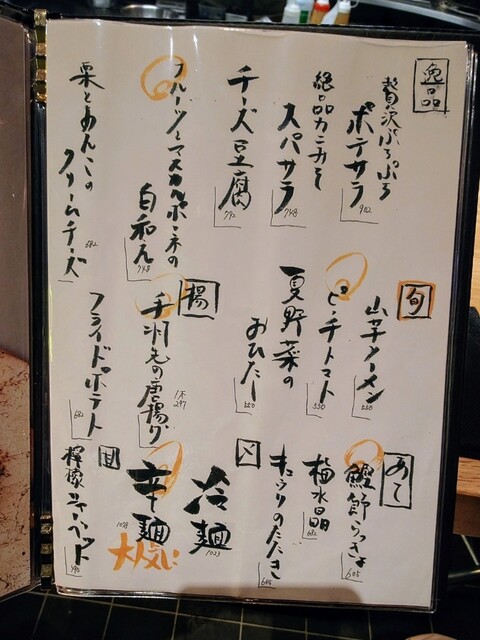 逸品
贅沢ぷろぷろ
ポテサラ
902
絶品カニみそ
スパサラ
748
チーズ豆腐
792
フルーツとマスカルポーネの
白和え
748
栗とあんこの
クリームチーズ
682
旬
山芋ソーメン
550
ピーチトマト
550
夏野菜の
おひたし
550
揚
手羽先の唐揚げ
1本
297
フライドポテト
682
あて
鰹節らっきょ
605
梅水晶
682
キュウリのたたき
〆
冷麺
1023
辛麺
大人気!!
甘
檸檬シャーベット